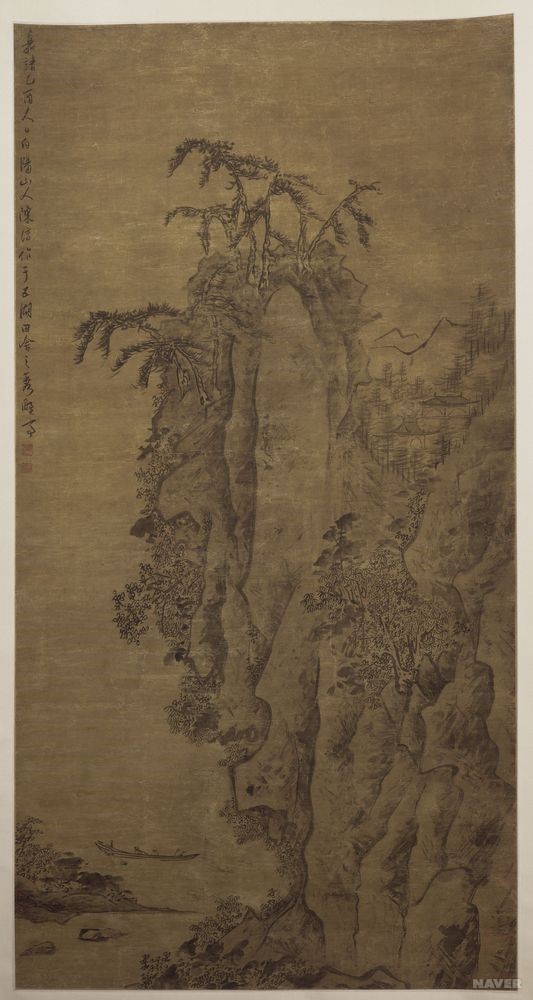 嘉靖乙酉人日白陽山人陳淳作于五湖田舍之
NAVER